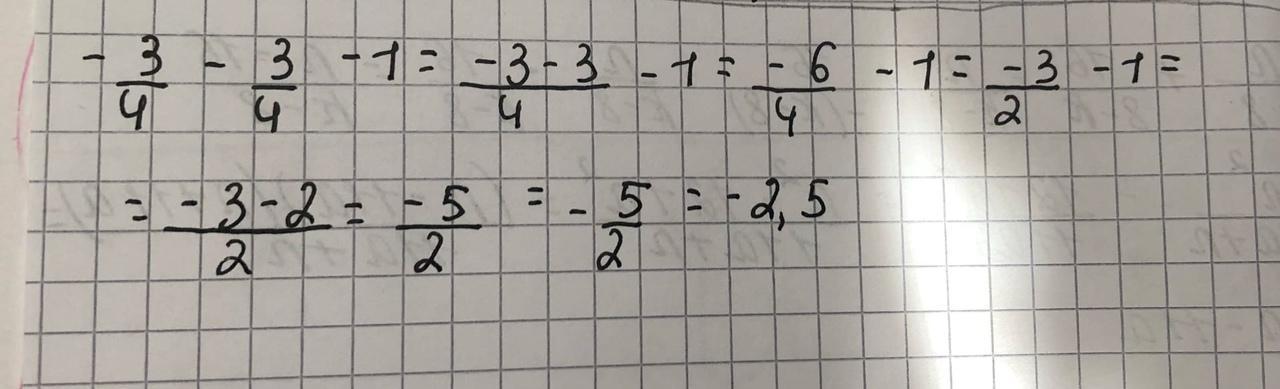 - 3/4 - 3/4 - 1 = (-3-3)/4 - 1 = -6/4 - 1 = -3/2 - 1 =
= (-3-2)/2 = -5/2 = - 5/2 = -2,5